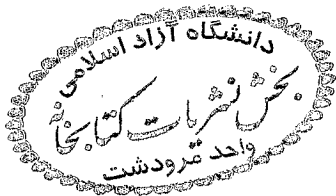 دانشگاه آزاد اسلامی
بخش نشریات کتابخانه
واحد مرودشت